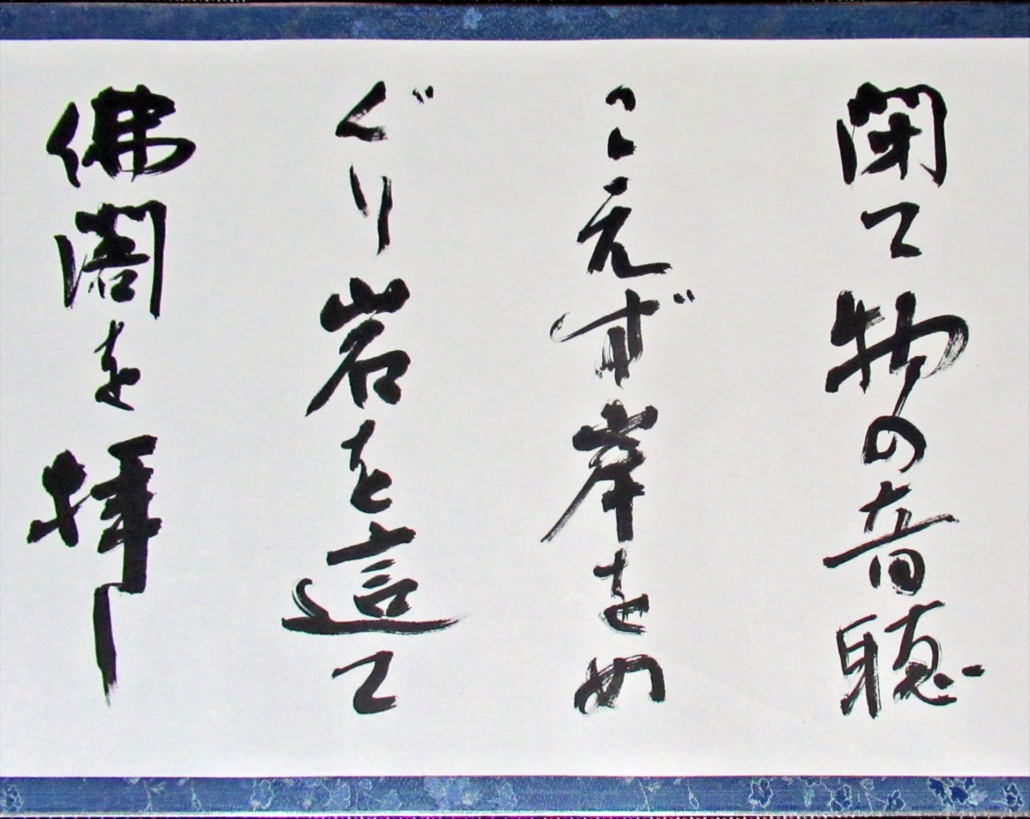 閉て物の音聴
こえず岸をめ
ぐり岩を這て
佛閣を拝し